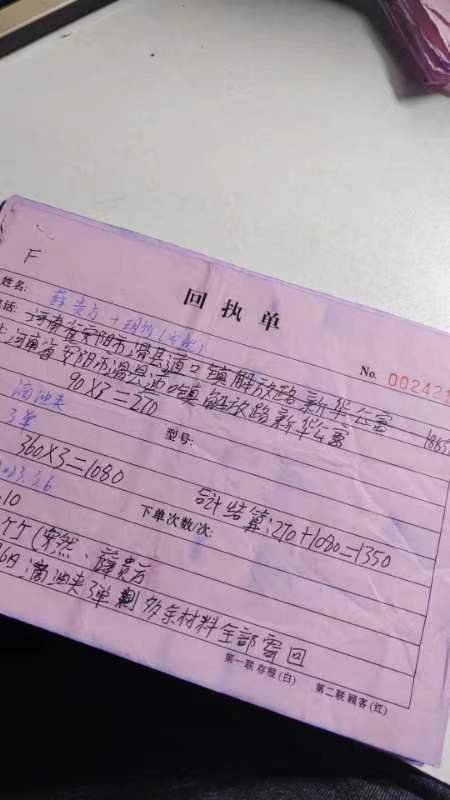 F
回执单
No. 002421
姓名: 薛贵方
河南省安阳市滑县道口镇解放路新华公寓
河南省安阳市滑县道口镇解放路新华公寓
90×3=270
滴油夹
型号:
3单
360×3=1080
合计结算:270+1080=1350
下单次数/次:
.10
薛贵方
6日:滴油夹3单 剩 多余材料全部寄回
第一联 存根(白) 第二联 顾客(红)